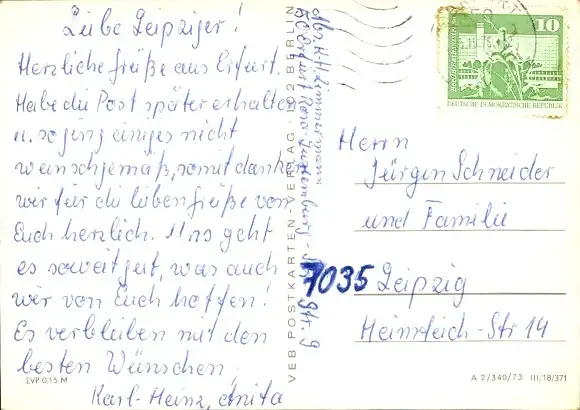 Liebe Leipziger!
Herzliche Grüße aus Erfurt.
Habe die Post später erhalten
u. so ging einiges nicht
wunschgemäß, somit danken
wir für die lieben Grüße von
Euch herzlich. Uns geht
es soweit gut, was auch
wir von Euch hoffen!
Es verbleiben mit den
besten Wünschen
Karl-Heinz, Anita
EVP 0,15 M
VEB POSTKARTEN-VERLAG 102 BERLIN
Abs. K.H. Zimmermann
50 Erfurt Rosa-Luxemburg-Str. 9
10
DEUTSCHE DEMOKRATISCHE REPUBLIK
Herrn
Jürgen Schneider
und Familie
7035 Leipzig
Heinrich-Str 14
A 2/340/73 III/18/371